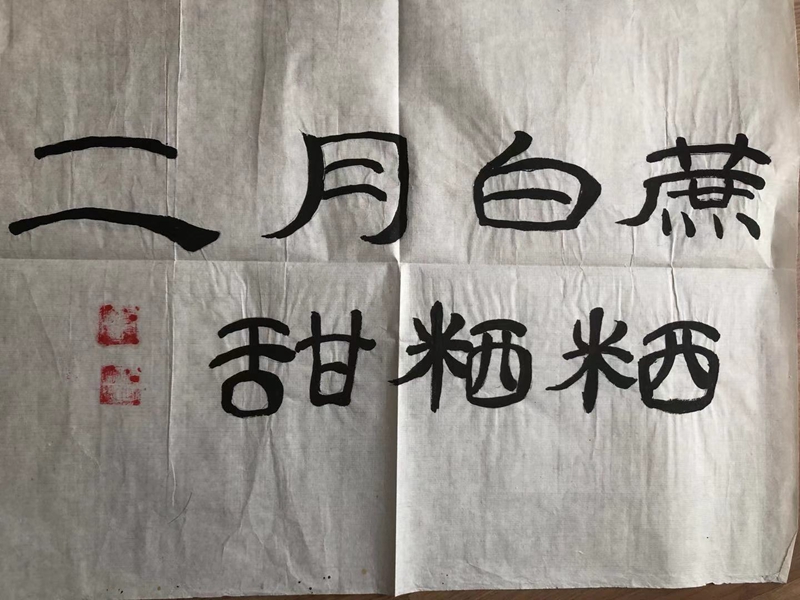 二月白蔗
甜粞粞